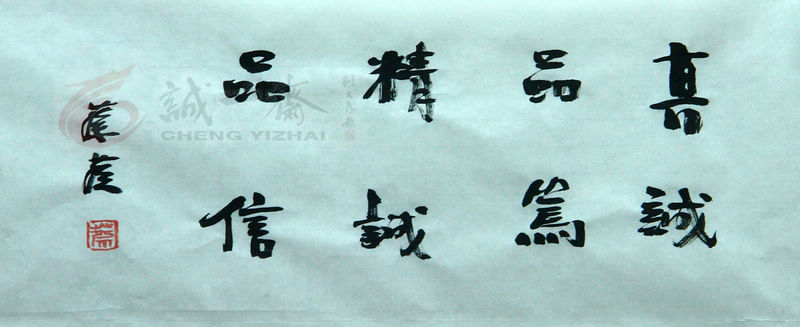 高誠
品篤
精誠
品信
誠一齋
CHENG YIZHAI